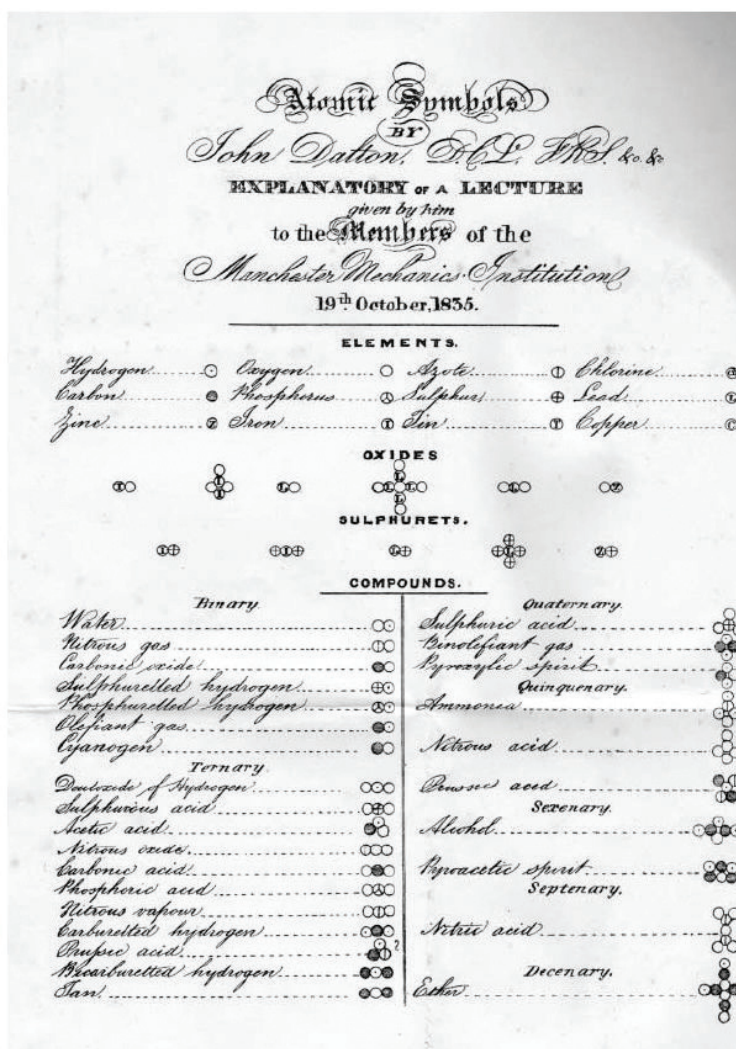 Atomic Symbols
BY
John Dalton, D.C.L. F.R.S. &c. &c
EXPLANATORY OF A LECTURE
given by him
to the Members of the
Manchester Mechanics' Institution
19th October, 1835.
ELEMENTS.
Hydrogen Oxygen Azote Chlorine
Carbon Phosphorus Sulphur Lead
Zinc Iron Tin Copper
OXIDES
SULPHURETS.
COMPOUNDS.
Binary.
Water
Nitrous gas
Carbonic oxide
Sulphuretted hydrogen
Phosphuretted hydrogen
Olefiant gas
Cyanogen
Ternary.
Deutoxide of Hydrogen
Sulphurous acid
Acetic acid
Nitrous oxide
Carbonic acid
Phosphoric acid
Nitrous vapour
Carburetted hydrogen
Prussic acid 2
Bicarburetted hydrogen
Tan
Quaternary.
Sulphuric acid
Binolefiant gas
Pyroxylic spirit
Quinquenary.
Ammonia
Nitrous acid
Prussic acid
Sexenary.
Alcohol
Pyroacetic spirit
Septenary.
Nitric acid
Decenary.
Ether